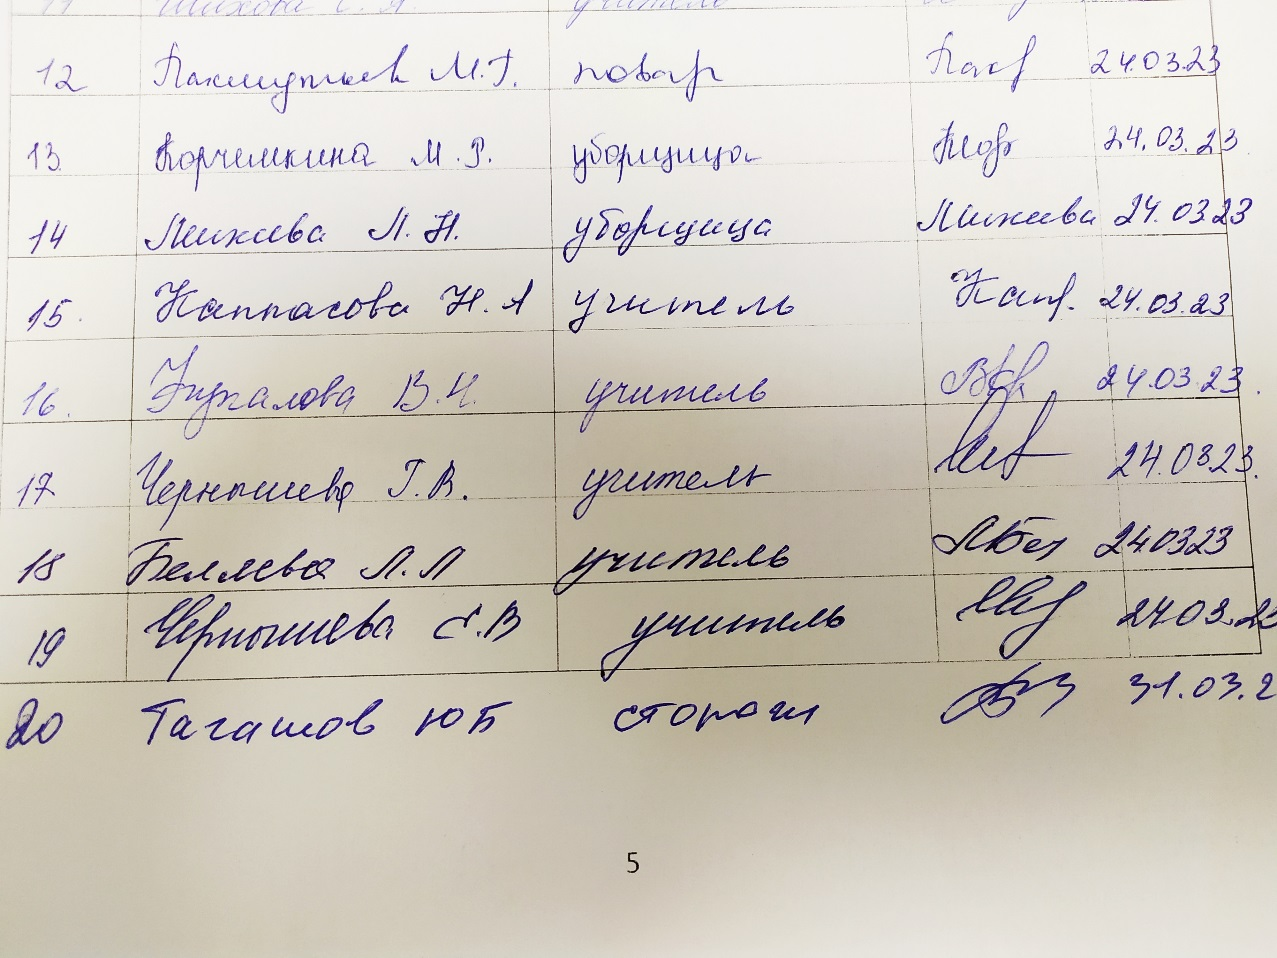 12 Пахмутьев М.Г. повар Пах 24.03.23
13. Корчемкина М.Р. уборщица Кор 24.03.23
14 Михеева Л.Н. уборщица Михеева 24.0323
15. Каппасова Н.А учитель Капп. 24.03.23
16. В.Н. учитель 24.03.23.
17 Чернышева Г.В. учитель 24.0323.
18 Беляева Л.Л учитель ЛБел 240323
19 Чернышева Е.В учитель 2403.23
20 Тагашов ЮБ сторож 31.03.2
5